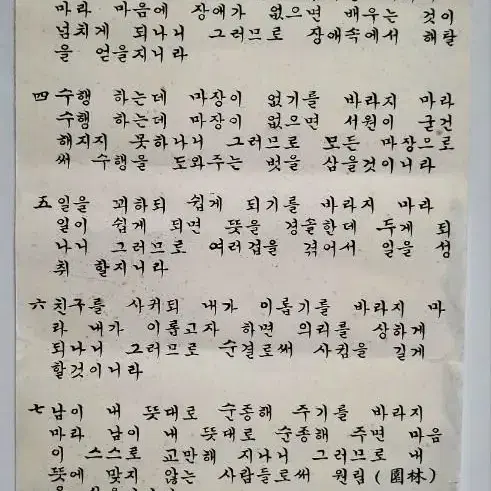 마라 마음에 장애가 없으면 배우는 것이
넘치게 되나니 그러므로 장애속에서 해탈
을 얻을지니라
四 수행 하는데 마장이 없기를 바라지 마라
수행 하는데 마장이 없으면 서원이 굳건
해지지 못하나니 그러므로 모든 마장으로
써 수행을 도와주는 벗을 삼을것이니라
五 일을 꾀하되 쉽게 되기를 바라지 마라
일이 쉽게 되면 뜻을 경솔한데 두게 되
나니 그러므로 여러겁을 겪어서 일을 성
취 할지니라
六 친구를 사귀되 내가 이롭기를 바라지 마
라 내가 이롭고자 하면 의리를 상하게
되나니 그러므로 순결로써 사귐을 길게
할것이니라
七 남이 내 뜻대로 순종해 주기를 바라지
마라 남이 내 뜻대로 순종해 주면 마음
이 스스로 교만해 지나니 그러므로 내
뜻에 맞지 않는 사람들로써 원림(園林)